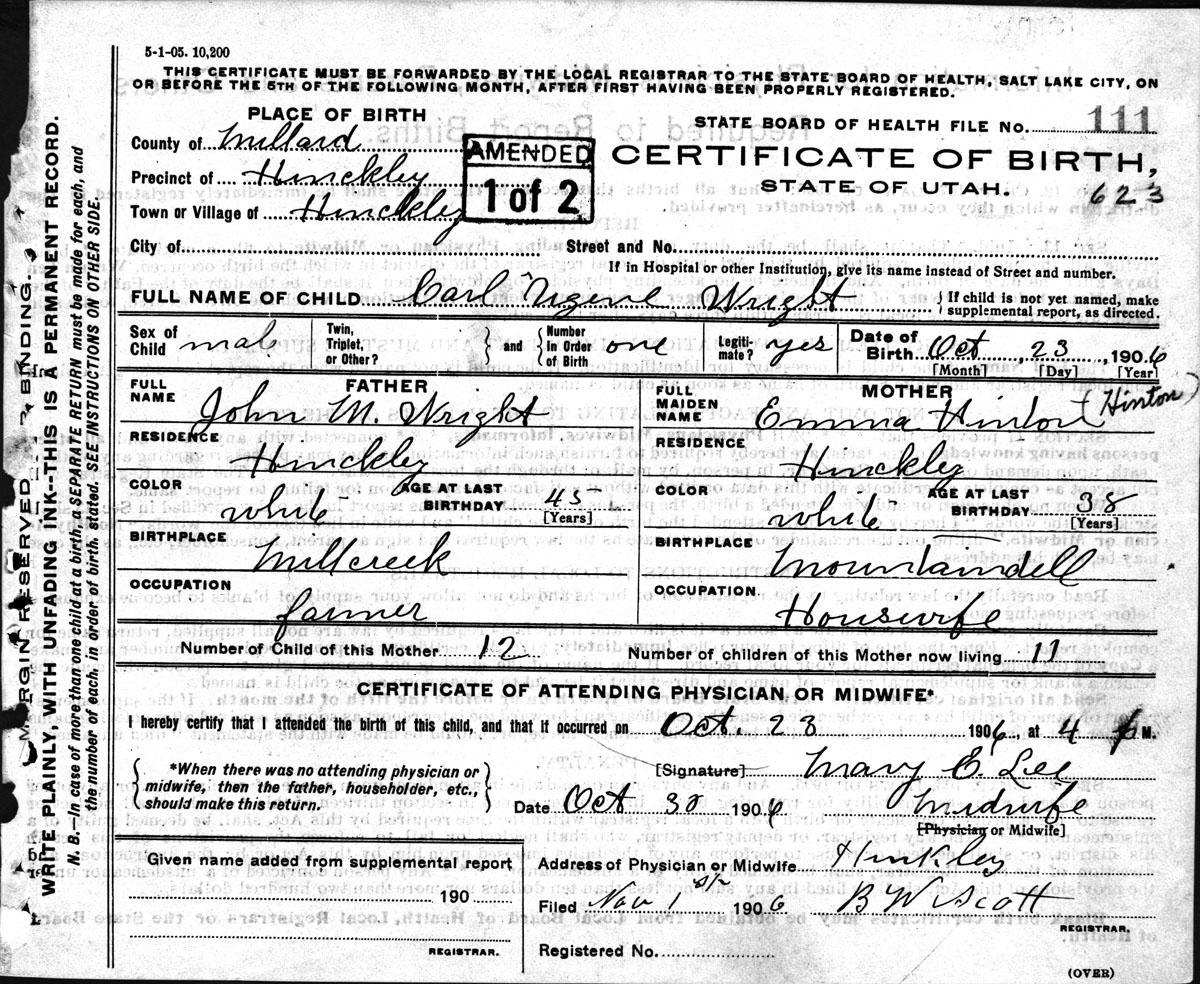 5-1-05. 10,200
THIS CERTIFICATE MUST BE FORWARDED BY THE LOCAL REGISTRAR TO THE STATE BOARD OF HEALTH, SALT LAKE CITY, ON
OR BEFORE THE 5TH OF THE FOLLOWING MONTH, AFTER FIRST HAVING BEEN PROPERLY REGISTERED.
PLACE OF BIRTH
STATE BOARD OF HEALTH FILE No. 111
County of Millard
AMENDED
1 of 2
CERTIFICATE OF BIRTH,
Precinct of Hinckley
STATE OF UTAH.
623
Town or Village of Hinckley
City of Street and No.
If in Hospital or other Institution, give its name instead of Street and number.
FULL NAME OF CHILD Carl Ugene Wright
If child is not yet named, make
supplemental report, as directed.
Sex of Child male
Twin, Triplet, or Other? and Number in Order of Birth one
Legiti-mate? yes
Date of Birth Oct, 23, 1906
[Month] [Day] [Year]
FATHER
FULL NAME John M. Wright
MOTHER
FULL MAIDEN NAME Emma Hinton (Hinton)
RESIDENCE Hinckley
RESIDENCE Hinckley
COLOR white AGE AT LAST BIRTHDAY 45 [Years]
COLOR white AGE AT LAST BIRTHDAY 38 [Years]
BIRTHPLACE Millcreek
BIRTHPLACE Mountaindell
OCCUPATION farmer
OCCUPATION Housewife
Number of Child of this Mother 12 Number of children of this Mother now living 11
CERTIFICATE OF ATTENDING PHYSICIAN OR MIDWIFE*
I hereby certify that I attended the birth of this child, and that it occurred on Oct. 23 1906, at 4 M.
*When there was no attending physician or
midwife, then the father, householder, etc.,
should make this return.
[Signature] Mary E. Lee
Date Oct 30 1906 Midwife
[Physician or Midwife]
Given name added from supplemental report
190
REGISTRAR.
Address of Physician or Midwife Hinkley
Filed Nov 1 1906 B W Scott
REGISTRAR.
Registered No.
(OVER)
MARGIN RESERVED FOR BINDING
WRITE PLAINLY, WITH UNFADING INK--THIS IS A PERMANENT RECORD.
N. B.--In case of more than one child at a birth, a SEPARATE RETURN must be made for each, and
the number of each, in order of birth, stated. SEE INSTRUCTIONS ON OTHER SIDE.